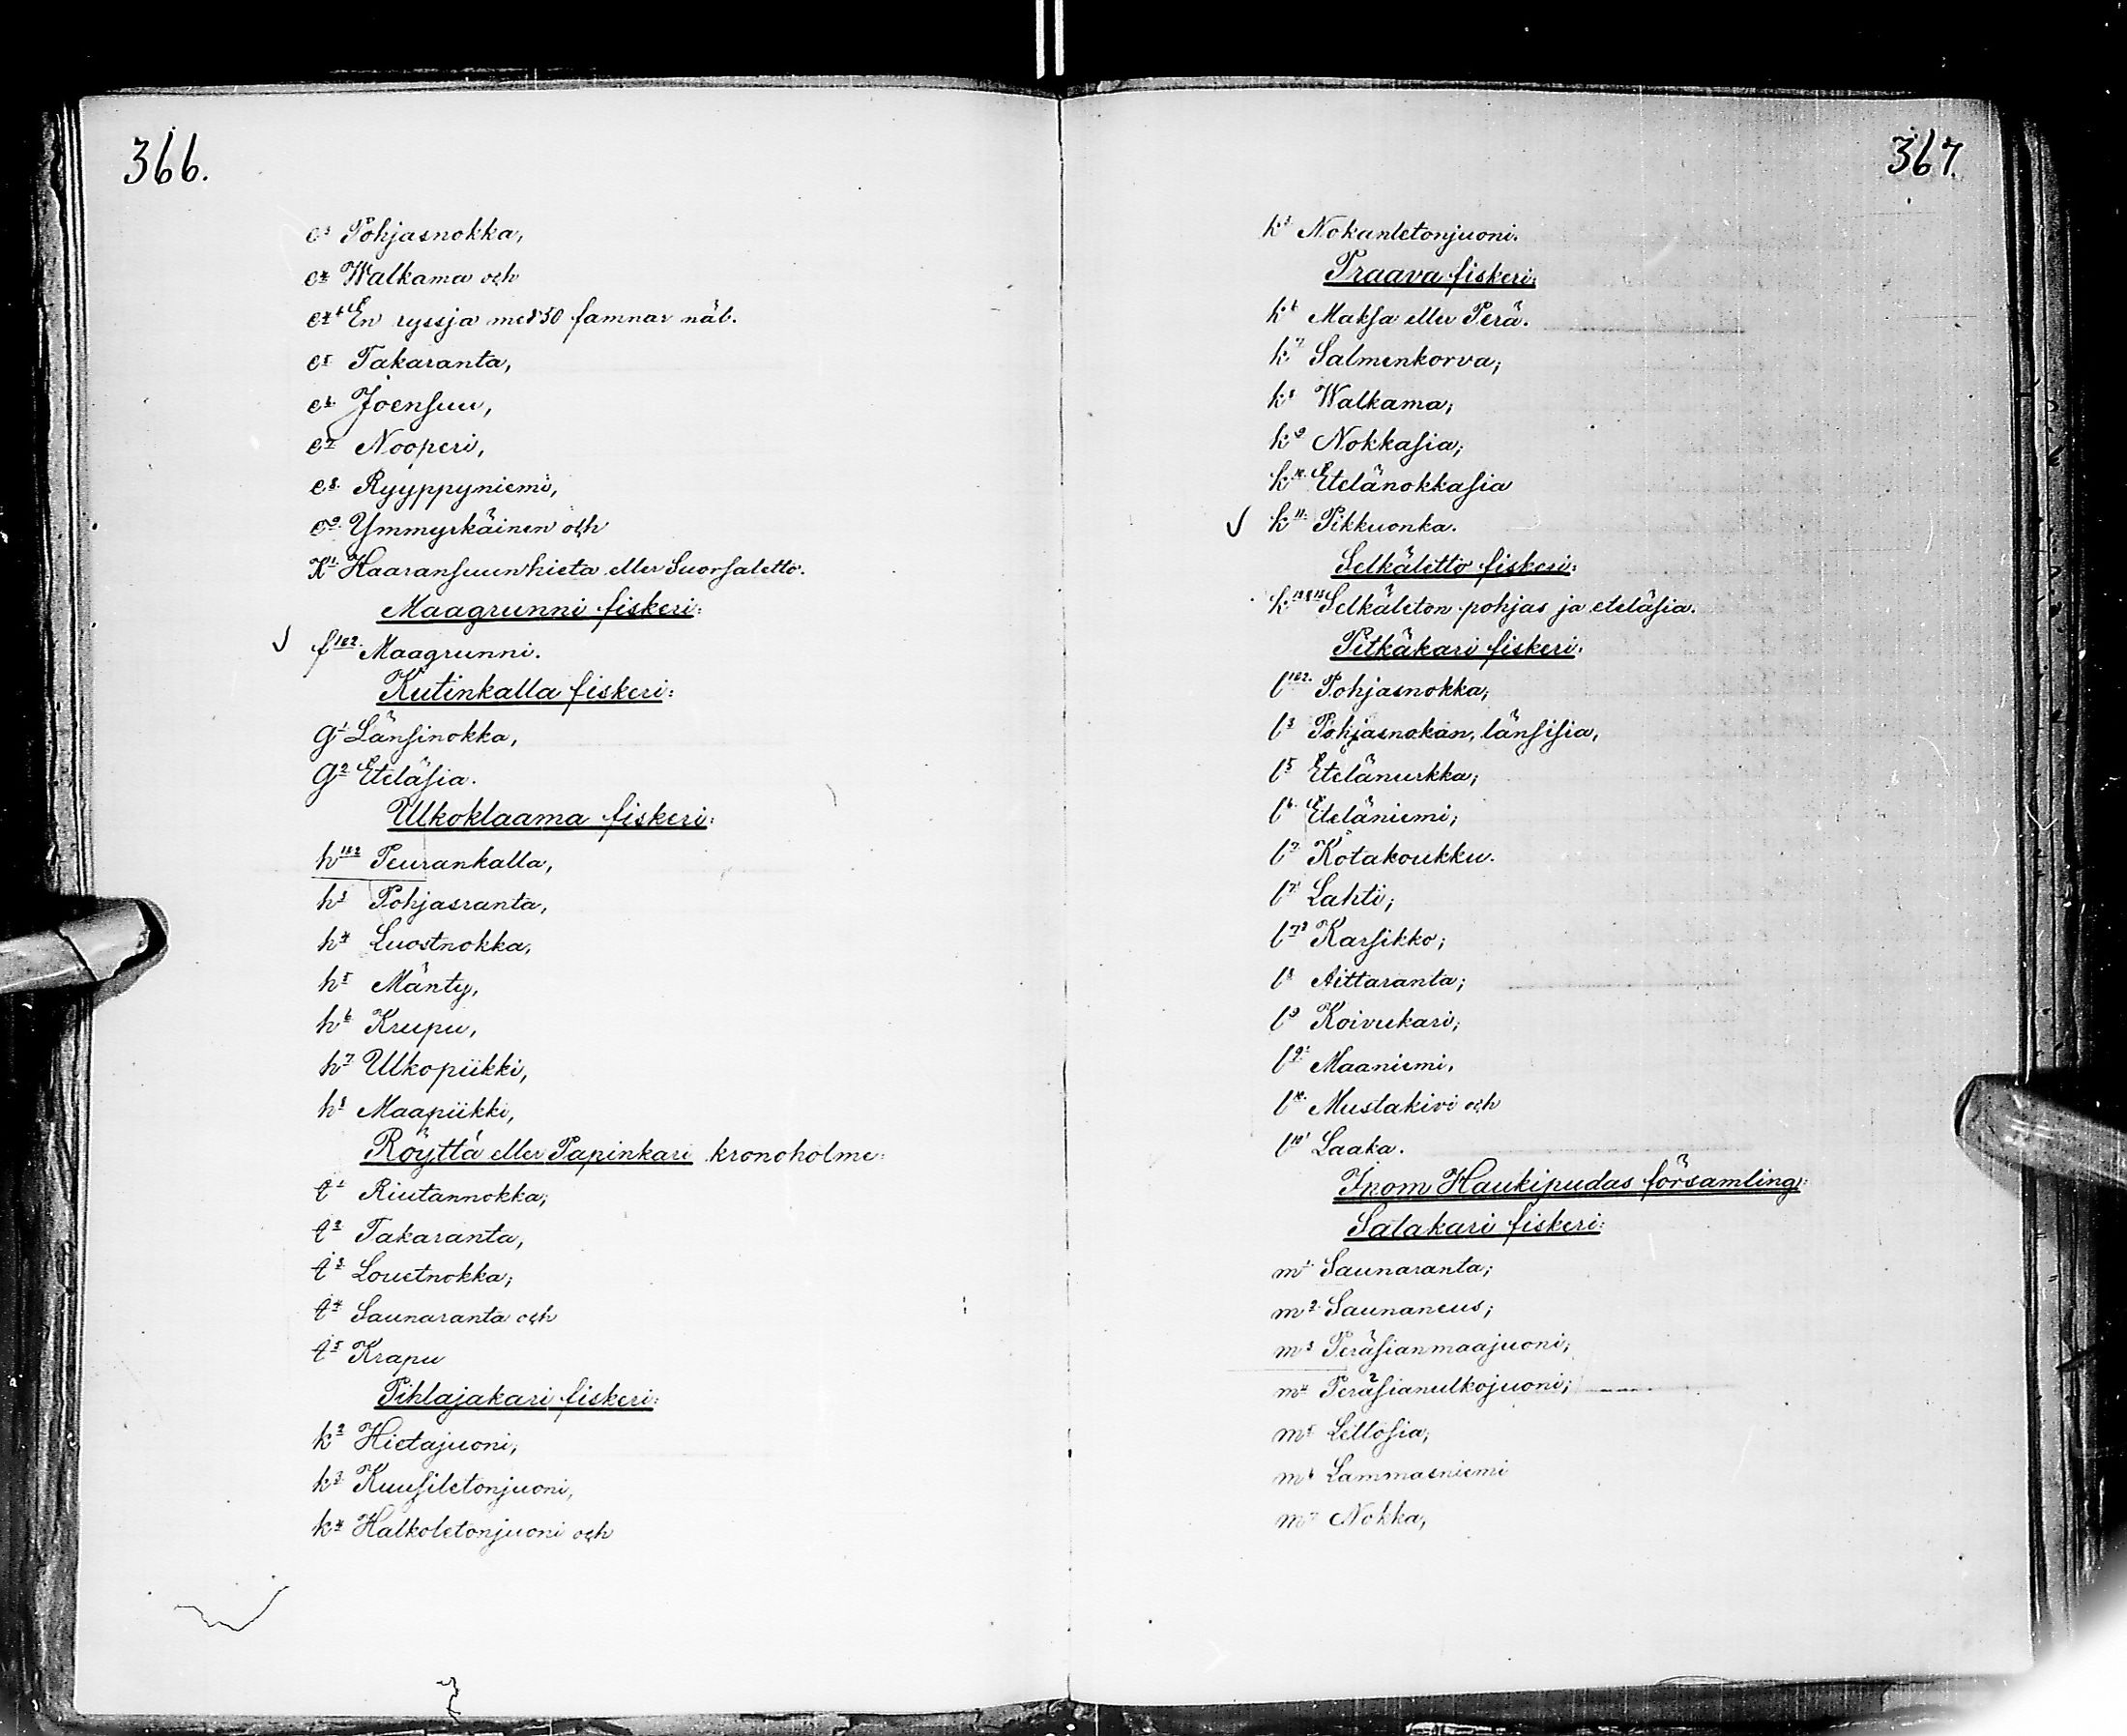 366.
e³ Pohjasnokka,
e⁴ Walkama och
e⁴·¹ En ryssja med 50 famnar nät.
e⁵ Takaranta,
e⁶ Joensuu,
e⁷ Nooperi,
e⁸ Ryyppyniemi,
e⁹ Ymmyrkäinen och
Haaransuunhieta eller Suorsaletto.
Maagrunni fiskeri:
f¹&² Maagrunni.
Kutinkalla fiskeri:
g¹ Länsinokka,
g² Eteläsia.
Ulkoklaama fiskeri:
h¹&² Peurankalla,
h³ Pohjasranta,
h⁴ Luostnokka,
h⁵ Mänty,
h⁶ Krupu,
h⁷ Ulkopiikki,
h⁸ Maapiikki,
Röyttä eller Papinkari kronoholme:
i¹ Riutannokka;
i² Takaranta,
i³ Louetnokka;
i⁴ Saunaranta och
i⁵ Krapu
Pihlajakari fiskeri:
k² Hietajuoni;
k³ Kuusiletonjuoni,
k⁴ Halkoletonjuoni och
367.
k⁵ Nokanletonjuoni.
Praava fiskeri:
k⁶ Maksa eller Perä.
k⁷ Salmenkorva;
k⁸ Walkama;
k⁹ Nokkasia;
k¹⁰ Etelänokkasia
k¹¹ Pikkuonka.
Selkäletto fiskeri:
Selkäleton pohjas ja eteläsia.
Pitkäkari fiskeri:
l¹&² Pohjasnokka;
l³ Pohjasnokan, länsisia,
l⁵ Etelänurkka;
l⁶ Eteläniemi;
l⁷ Kotakoukku.
l⁷·¹ Lahti;
l⁷·² Karsikko;
l⁸ Aittaranta;
l⁹ Koivukari;
l⁹·¹ Maaniemi,
l¹⁰ Mustakivi och
l¹⁰·¹ Laaka.
Inom Haukipudas församling:
Satakari fiskeri:
m¹ Saunaranta;
m² Saunaneus;
m³ Peräsianmaajuoni;
m⁴ Peräsianulkojuoni;
m⁵ Lettosia;
m⁶ Lammasniemi
m⁷ Nokka,